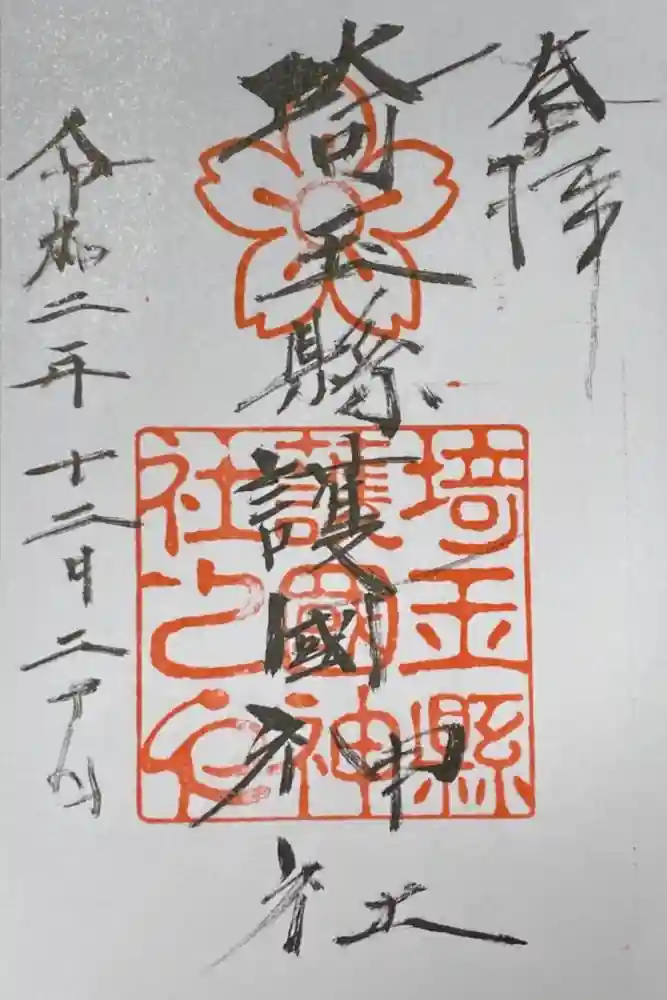 奉拝
埼玉縣護國神社
埼玉縣
護國神
社之印
令和二年十二月二十